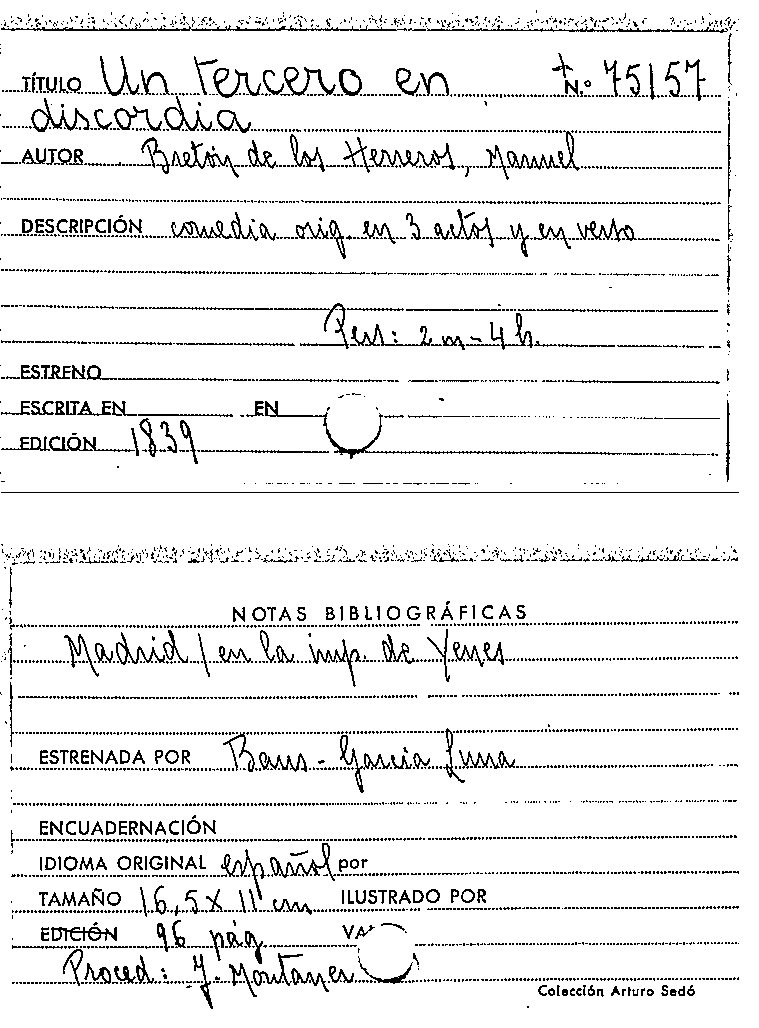 TÍTULO Un tercero en + N.º 75157
discordia
AUTOR Bretón de los Herreros, Manuel
DESCRIPCIÓN comedia orig. en 3 actos y en verso
Pers: 2 m - 4 h.
ESTRENO
ESCRITA EN EN
EDICIÓN 1839
NOTAS BIBLIOGRÁFICAS
Madrid / en la imp. de Yenes
ESTRENADA POR Baus - García Luna
ENCUADERNACIÓN
IDIOMA ORIGINAL español por
TAMAÑO 16,5 x 11 cm ILUSTRADO POR
EDICIÓN 96 pág
Proced: J. Montaner
Colección Arturo Sedó